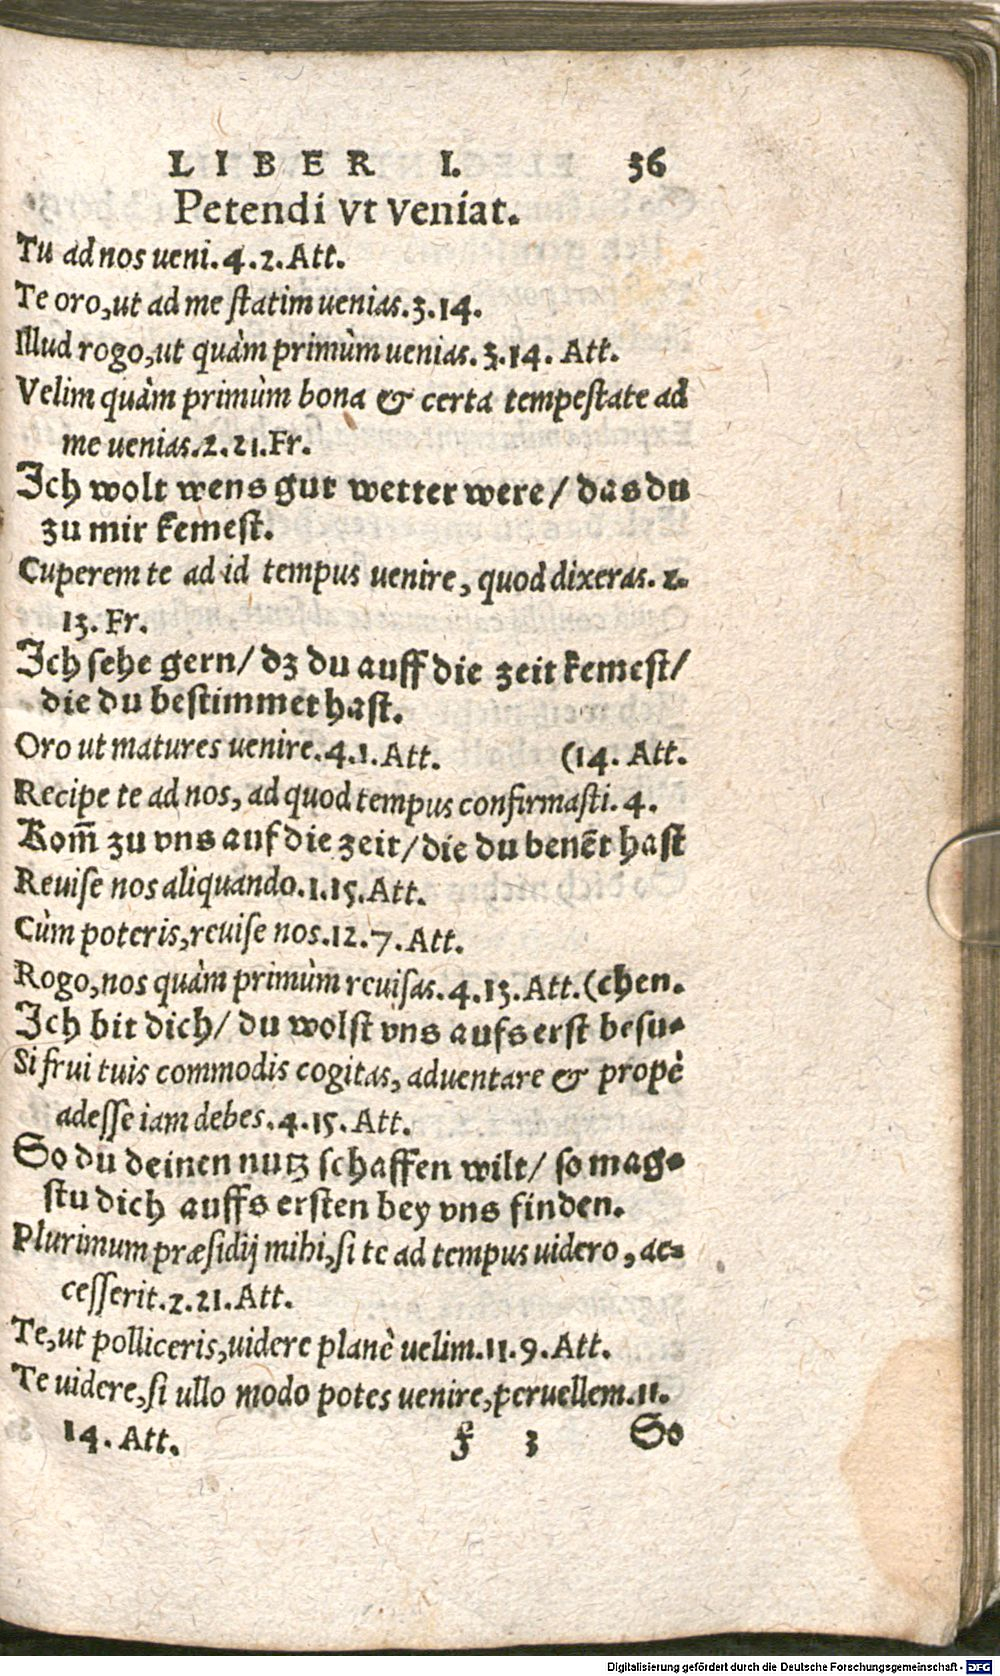 LIBER I. 36
Petendi vt veniat.
Tu ad nos ueni. 4. 2. Att.
Te oro, ut ad me ſtatim uenias. 3. 14.
Illud rogo, ut quàm primùm uenias. 3. 14. Att.
Velim quàm primùm bona & certa tempeſtate ad
me uenias. 2. 21. Fr.
Ich wolt wens gut wetter were/ das du
zu mir kemeſt.
Cuperem te ad id tempus uenire, quod dixeras. 2.
13. Fr.
Ich ſehe gern/ dz du auff die zeit kemeſt/
die du beſtimmet haſt.
Oro ut matures uenire. 4. 1. Att. (14. Att.
Recipe te ad nos, ad quod tempus confirmaſti. 4.
Kom̄ zu vns auf die zeit/ die du benēt haſt
Reuiſe nos aliquando. 1. 15. Att.
Cùm poteris, reuiſe nos. 12. 7. Att.
Rogo, nos quàm primùm reuiſas. 4. 13. Att. (chen.
Ich bit dich/ du wolſt vns aufs erſt beſu-
Si frui tuis commodis cogitas, aduentare & propè
adeſſe iam debes. 4. 15. Att.
So du deinen nutz ſchaffen wilt/ ſo mag-
ſtu dich auffs erſten bey vns finden.
Plurimum præſidij mihi, ſi te ad tempus uidero, ac-
ceſſerit. 2. 21. Att.
Te, ut polliceris, uidere planè uelim. 11. 9. Att.
Te uidere, ſi ullo modo potes uenire, peruellem. 11.
14. Att. 3 So
Digitalisierung gefördert durch die Deutsche Forschungsgemeinschaft - DFG